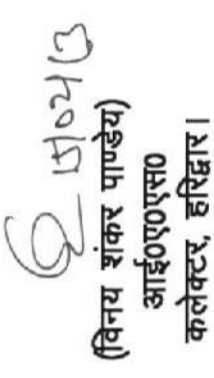 (विनय शंकर पाण्डेय)
आई०ए०एस०
कलेक्टर, हरिद्वार।